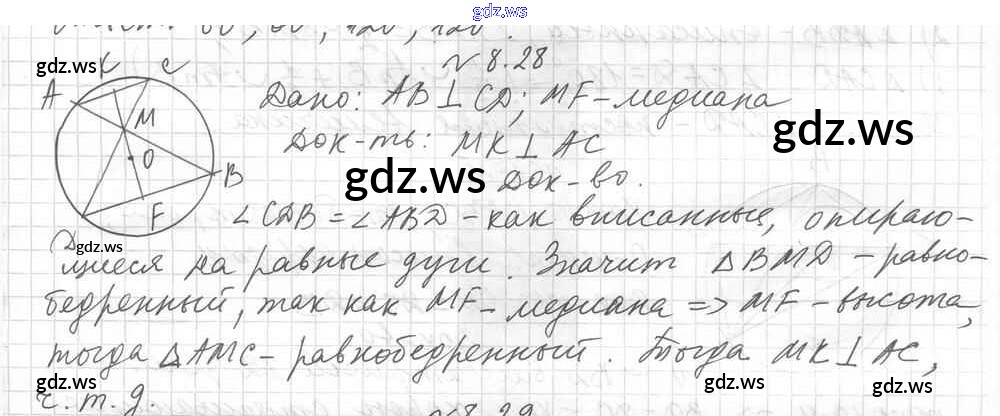 gdz.ws
60°, 60°, 120°, 120°.
№ 8.28
gdz.ws
K C
A
M
O
B
F
D
Дано: AB⊥CD; MF-медиана
gdz.ws
Док-ть: MK⊥AC
gdz.ws
Док-во.
∠CDB = ∠ABD - как вписанные, опираю-
gdz.ws
щиеся на равные дуги. Значит △BMD - равно-
бедренный, так как MF - медиана => MF - высота,
тогда △AMC - равнобедренный. Тогда MK⊥AC,
gdz.ws
gdz.ws
gdz.ws
ч.т.д.
№8.29